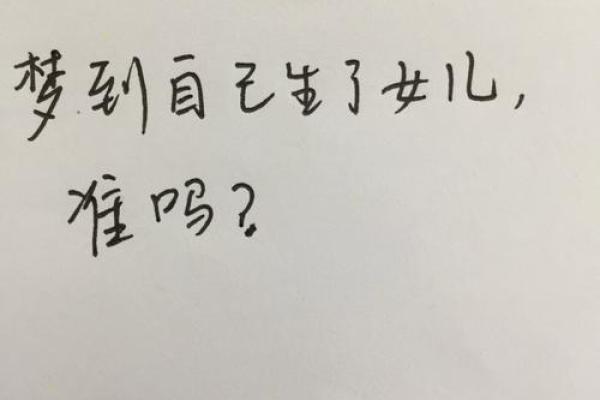 梦到自己生了女儿,
准吗?